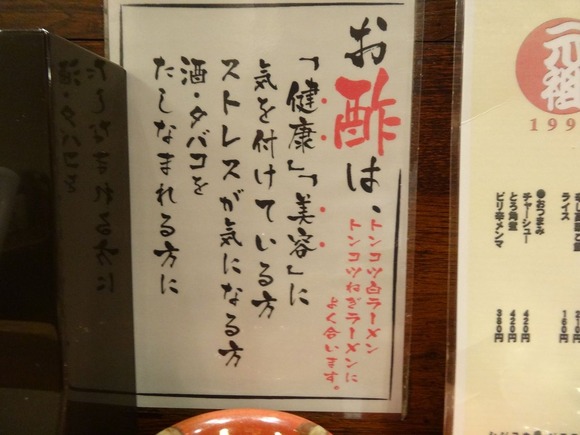 お酢は、
トンコツ白ラーメン
トンコツねぎラーメンに
よく合います。
「健康」「美容」に
気を付けている方
ストレスが気になる方
酒・タバコを
たしなまれる方に
元祖
199
ライス
おつまみ
チャーシュー 420円
とろ角煮 420円
ピリ辛メンマ 380円